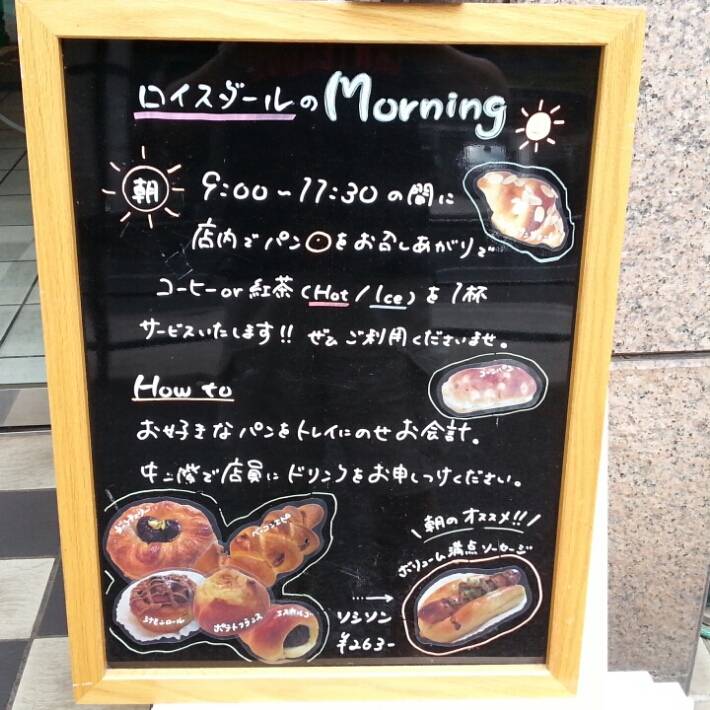 ロイスダールのMorning
朝
9:00〜11:30の間に
店内でパンをお召しあがりで
コーヒーor紅茶(Hot/Ice)を1杯
サービスいたします!! ぜひご利用くださいませ。
コーンパン
How to
お好きなパンをトレイにのせお会計。
中二階で店員にドリンクをお申しつけください。
朝のオススメ!!
ボリューム満点ソーセージ
ベーコンエピ
シナモンロール
ポテトフランス
エスカルゴー
ソシソン
¥263-